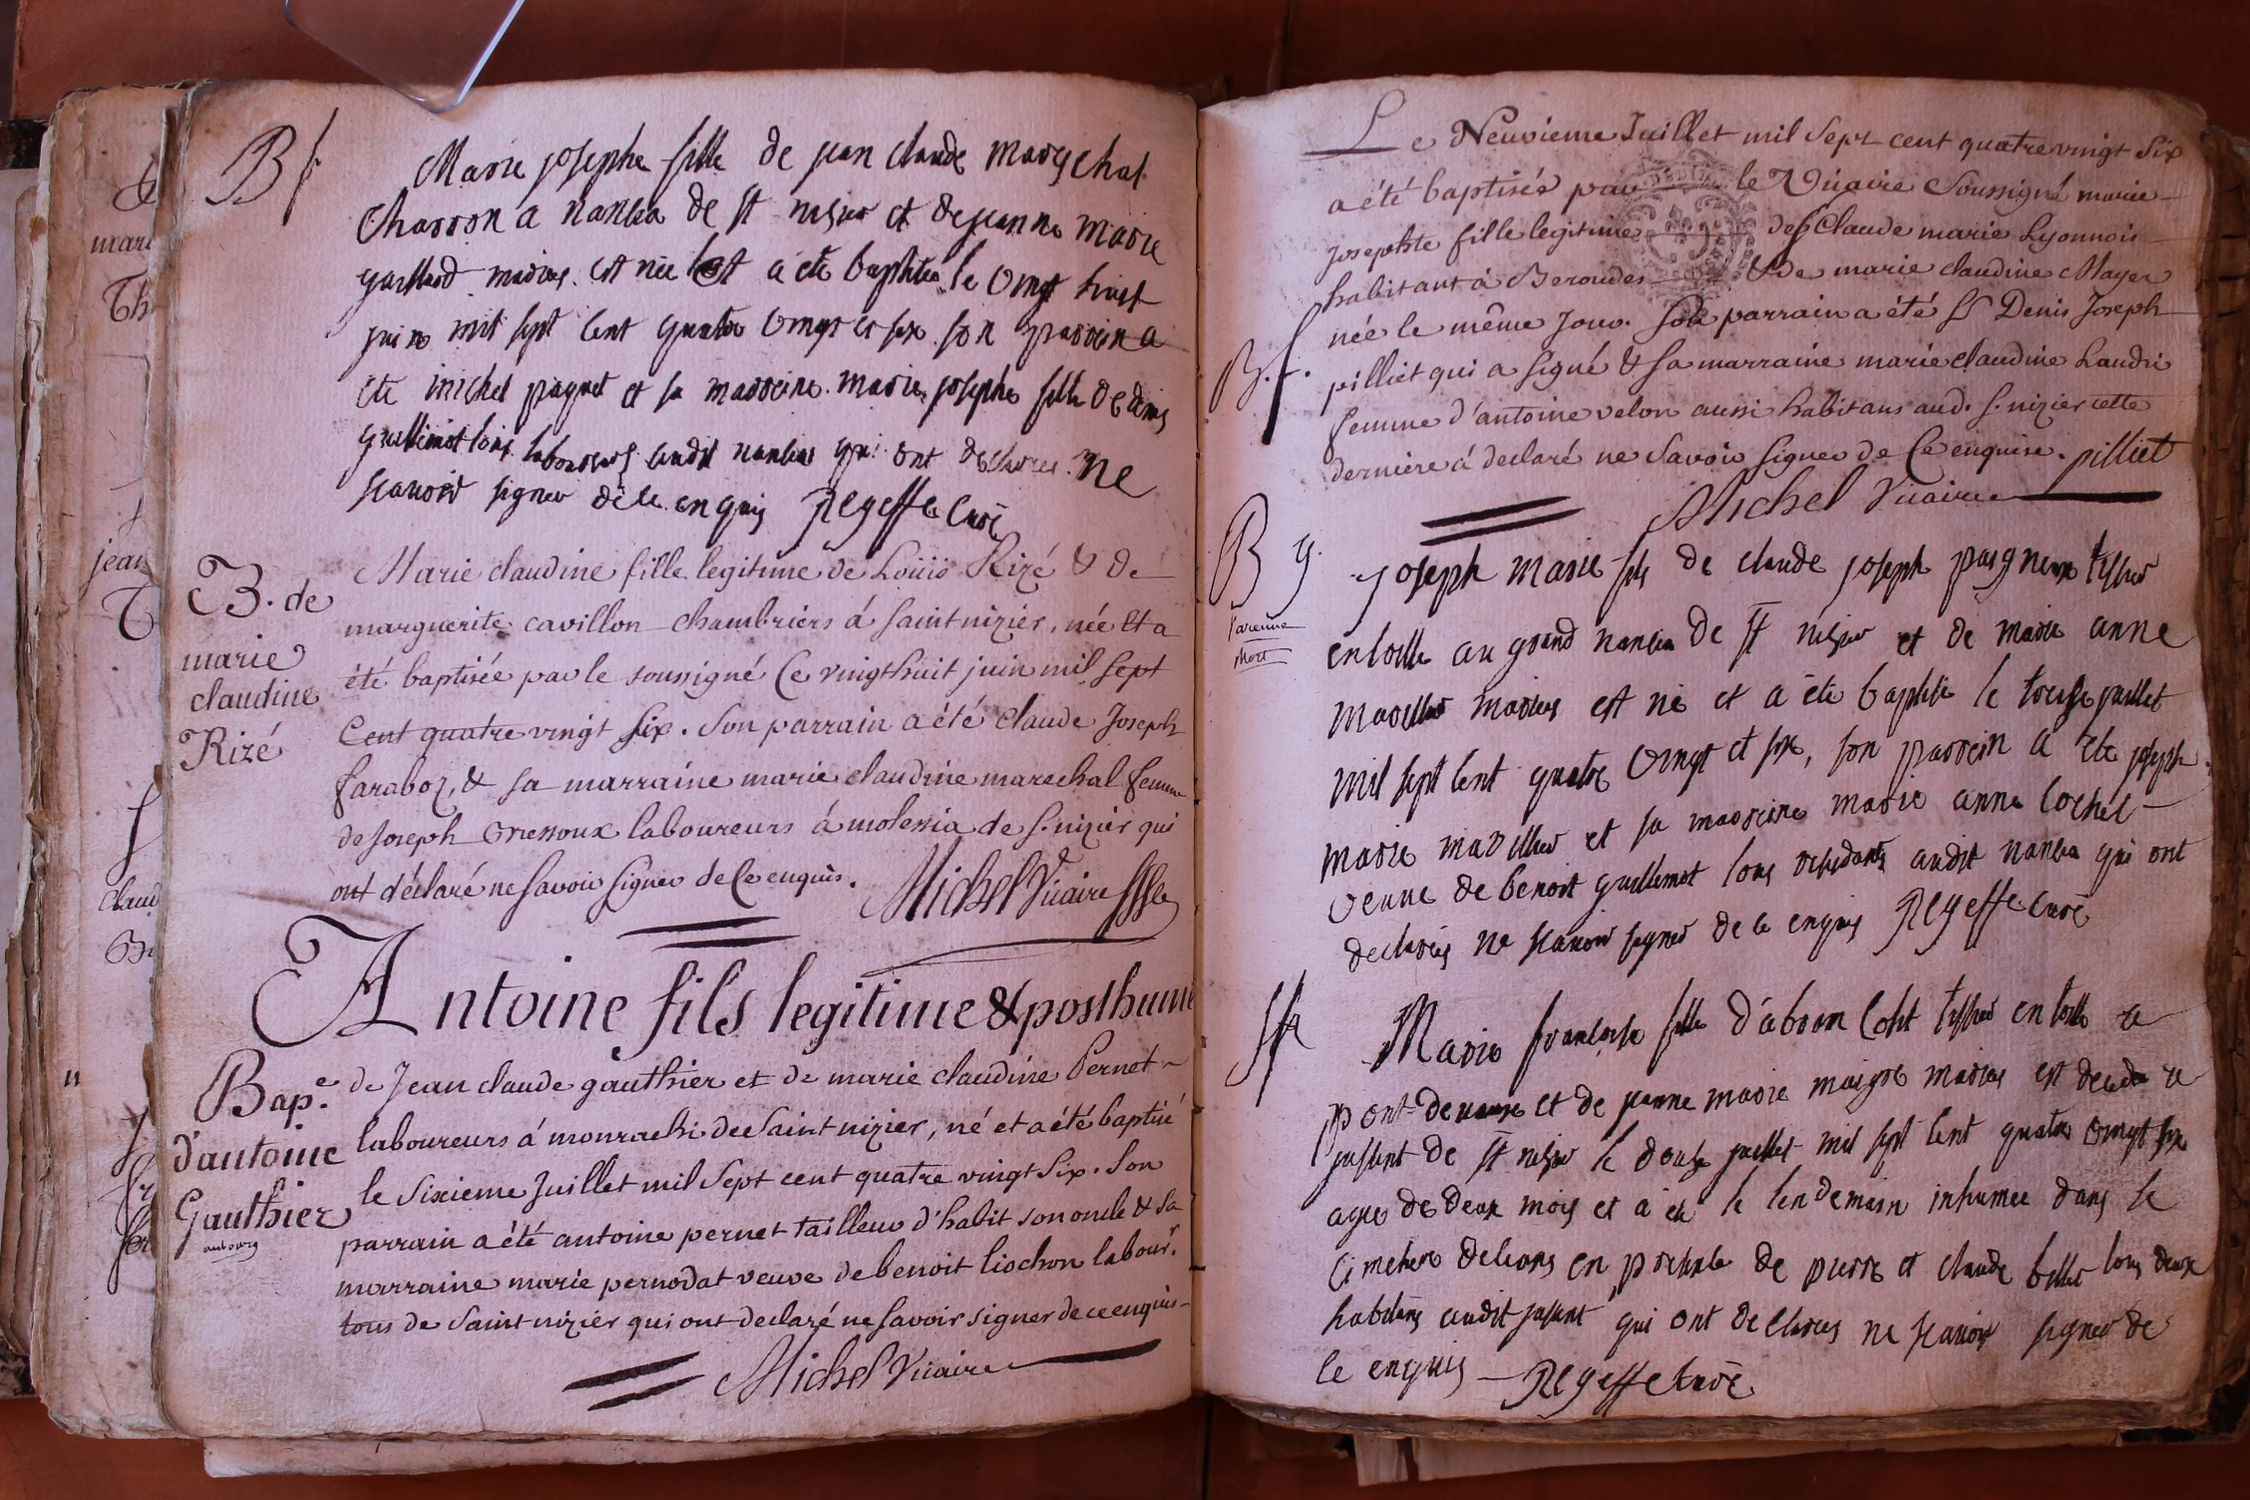 B f.
Marie josephe fille de jean claude mareschal
Charron a nantea de st nisier et de jeanne marie
guillard maries est née et a ete baptisee le vingt huit
juin mil sept cent quatre vingt et six son parrein a
ete michel piagnet et sa marreine marie josephe fille de denis
guillimot tous laboureurs audit nantea qui ont declarés ne
scavoir signer de ce enquis Regeffe curé
B. de
marie
claudine
Rizé
Marie claudine fille legitime de Louis Rizé & de
marguerite cavillon chambriers á saint nizier, née et a
été baptisée par le soussigné Ce vingt huit juin mil sept
Cent quatre vingt six. Son parrain a été claude Joseph
faraboz, & sa marraine marie claudine marechal femme
de Joseph laboureurs á molessia de s. nizier qui
ont déclaré ne savoir signer de Ce enquis.
Michel Vicaire
Antoine fils legitime & posthume
Bap.e
d'antoine
Gauthier
aubourg
de Jean claude gauthier et de marie claudine Pernet
laboureurs á monrachi de Saint nizier, né et a été baptisé
le Sixieme Juillet mil Sept cent quatre vingt Six. Son
parrain a été antoine pernet tailleur d'habit son oncle & sa
marraine marie pernodat veuve de benoit liochon labour.r
tous de Saint nizier qui ont declaré ne savoir signer de ce enquis
Michel Vicaire
Le Neuvieme Juillet mil Sept cent quatre vingt Six
a été baptisée par le Vicaire Soussigné marie
Josephte fille legitime de Claude marie Lyonnois
habitant á Beroudes & de marie claudine Mayer
née le même Jour. Son parrain a été S.r Denis Joseph
B. f.
pilliet qui a signé & sa marraine marie claudine Landri
femme d'antoine velon aussi habitans aud. s. nizier cette
derniere á declaré ne Savoir signer de Ce enquise. pilliet
Michel Vicaire
B g.
Varenne
Mort
Joseph marie fils de claude joseph tissier
en toille au grand nantea de st nisier et de marie anne
mariller maries est né et a été baptisé le treise juillet
mil sept cent quatre vingt et six, son parrein a été joseph
marie mariller et sa marreine marie anne cochet
veuve de benoit guillemot tous residants audit nantea qui ont
declarés ne scavoir signer de ce enquis Regeffe curé
Marie françoise fille d'abram tissier en toille a
pont de vaux et de jeanne marie maigre maries est decedee a
de st nisier le douse juillet mil sept cent quatre vingt six
agee de deux mois et a été le lendemain inhumee dans le
cimetiere de ceans en presence de pierre et claude tous deux
habitans audit qui ont declarés ne scavoir signer de
ce enquis Regeffe curé